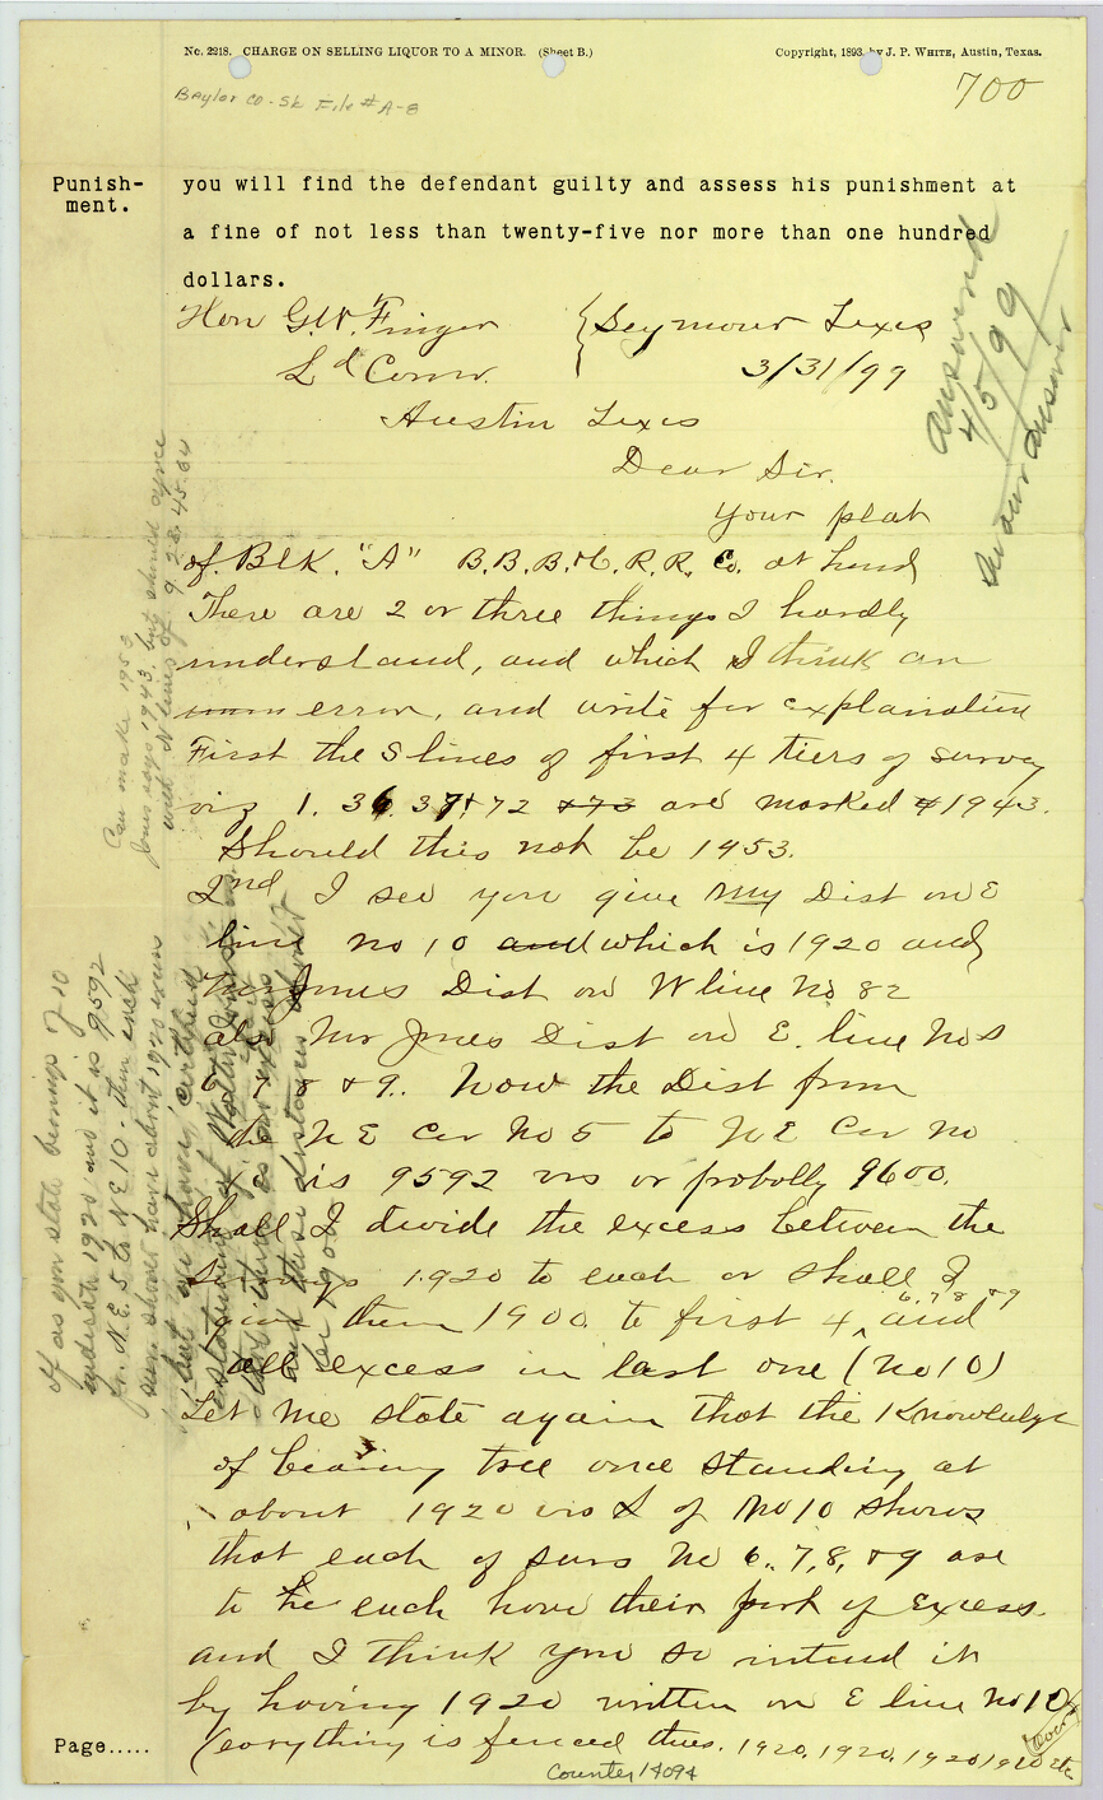 No. 2218. CHARGE ON SELLING LIQUOR TO A MINOR. (Sheet B.)
Copyright, 1893, by J. P. WHITE, Austin, Texas.
Baylor Co. Sk. File # A-8
700
Punish-
ment.
you will find the defendant guilty and assess his punishment at
a fine of not less than twenty-five nor more than one hundred
dollars.
Hon G.W. Finger
Seymour Texas
Ld Comr.
3/31/99
Austin Texas
Dear Sir.
Your plat
of Blk. "A" B.B.B.&C.R.R. Co. at hand
There are 2 or three things I hardly
understand, and which I think an
error, and write for explanation
First the S lines of first 4 tiers of survey
viz 1. 36. 37 & 72 & 73 are marked 1943.
Should this not be 1953.
2nd I see you give my Dist on E
line no 10 and which is 1920 and
Mr Jones Dist on W line No 82
also Mr Jones Dist on E. line Nos
6, 7 8 & 9.. Now the Dist from
the N E Cor No 5 to N E Cor No
10 is 9592 vrs or probolly 9600.
Shall I devide the excess between the
surveys 1920 to each or shall I
give them 1900 to first 4 6, 7 8, & 9 and
all excess in last one (No 10)
Let me state again that the Knowledge
of bearing tree once standing at
about 1920 vrs S of No 10 shows
that each of survs No 6., 7, 8, & 9 are
to he each have their part of Excess.
and I think you so intend it
by having 1920 written on E line No 10
(everything is fenced thus. 1920, 1920, 1920 1920 etc
(over)
Page.....
Counter 14094
Answered
4/5/99
See our answer
Can make 1953
Jones says 1943, but should agree
with N lines of 9.28.45.64
If as you state beings 7-10
indicate 1920 and it is 9592
fr. N.E. 5 to N E 10. then each
sur. should have about 1920 excess